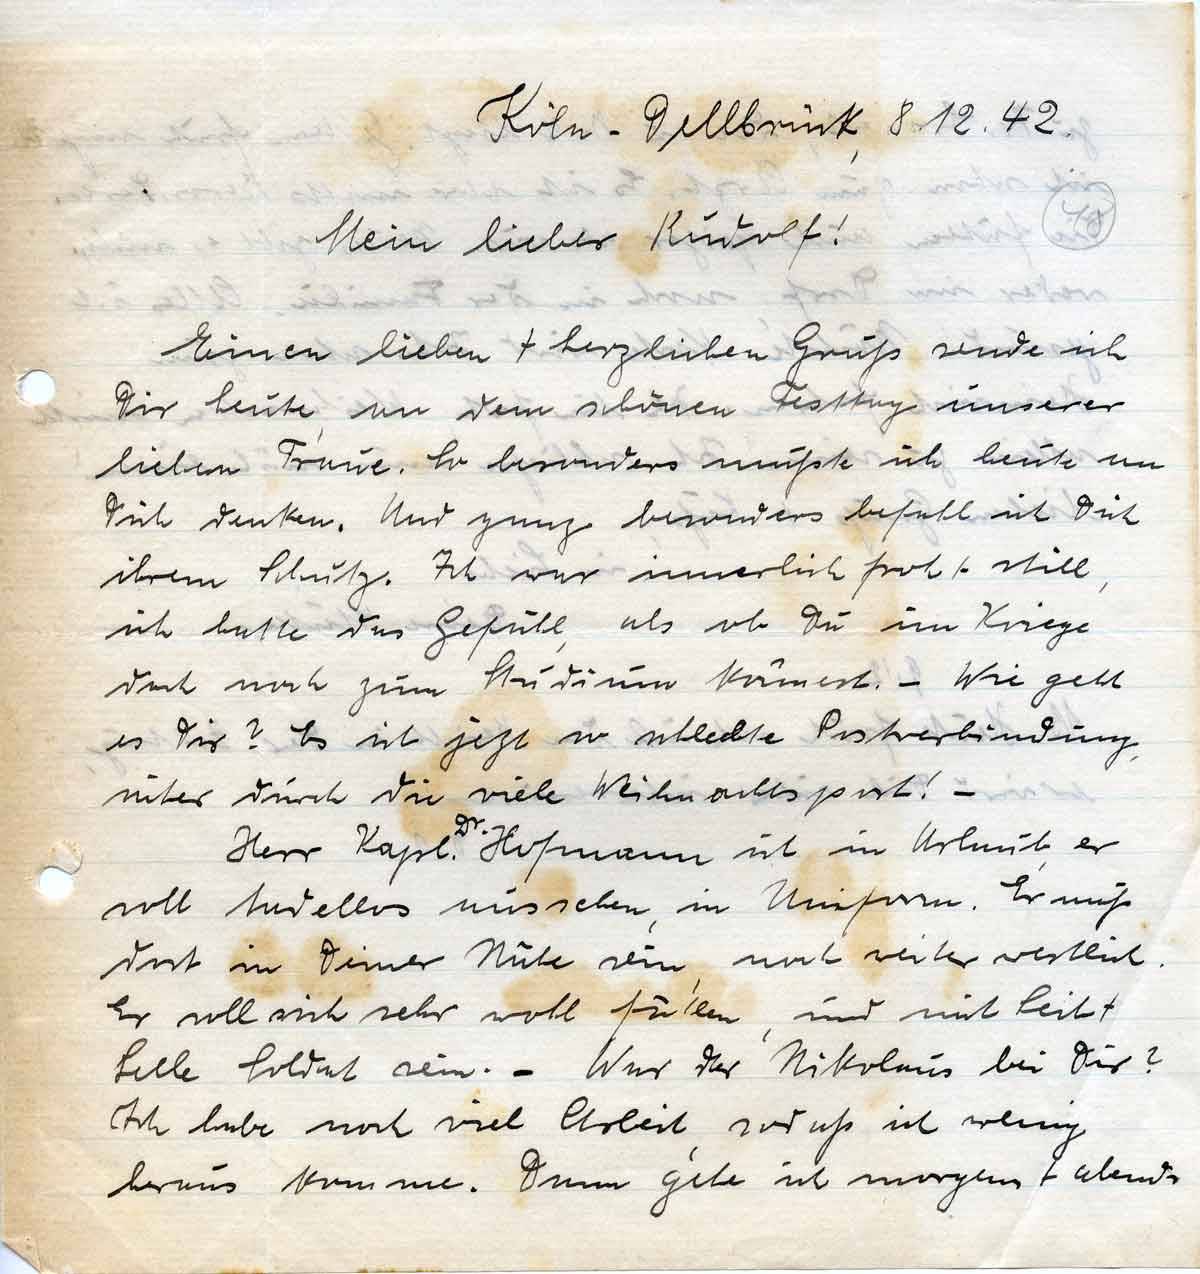 Köln-Dellbrück, 8.12.42.
18
Mein lieber Rudolf!
Einen lieben + herzlichen Gruß sende ich
Dir heute, an dem schönen Festtag unserer
lieben Fraue. So besonders mußte ich heute an
Dich denken. Und ganz besonders befahl ich Dich
ihrem Schutz. Ich war innerlich froh + still,
ich hatte das Gefühl, als ob Du im Kriege
doch noch zum Studium kämest. – Wie geht
es Dir? Es ist jetzt so schlechte Postverbindung,
sicher durch die viele Weihnachtspost! –
Herr Kapl. Dr. Hofmann ist in Urlaub, er
soll tadellos aussehen, in Uniform. Er muß
dort in Deiner Nähe sein, noch weiter westlich.
Er soll sich sehr wohl fühlen, und mit Leib +
Seele Soldat sein. – War der Nikolaus bei Dir?
Ich habe noch viel Arbeit, sodaß ich wenig
heraus komme. Dann gehe ich morgens + abends